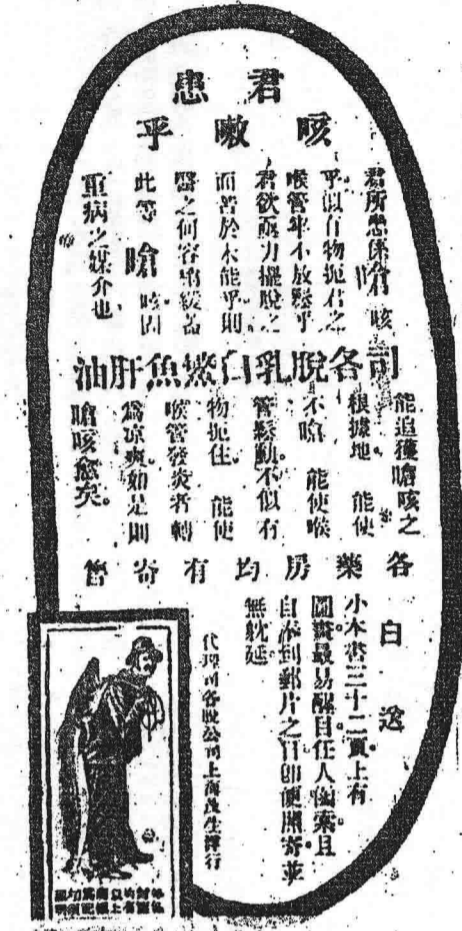 君患
咳嗽乎
君所患係嗆咳
乎似有物扼君之
喉管牢不放鬆乎
君欲竭力擺脫之
而苦於未能乎則
醫之何容稍緩蓋
此等嗆咳固
重病之媒介也
司各脫乳白鰵魚肝油
能追獲嗆咳之
根據地 能使
不嗆 能使喉
管鬆動不似有
物扼住 能使
喉管發炎者轉
為涼爽如是則
嗆咳愈矣。
各藥房均有寄售
白送
小本書三十二頁上有
圖畫最易醒目任人函索且
自奉到郵片之日即便照寄並
無躭延
代理司各脫公司上海茂生洋行